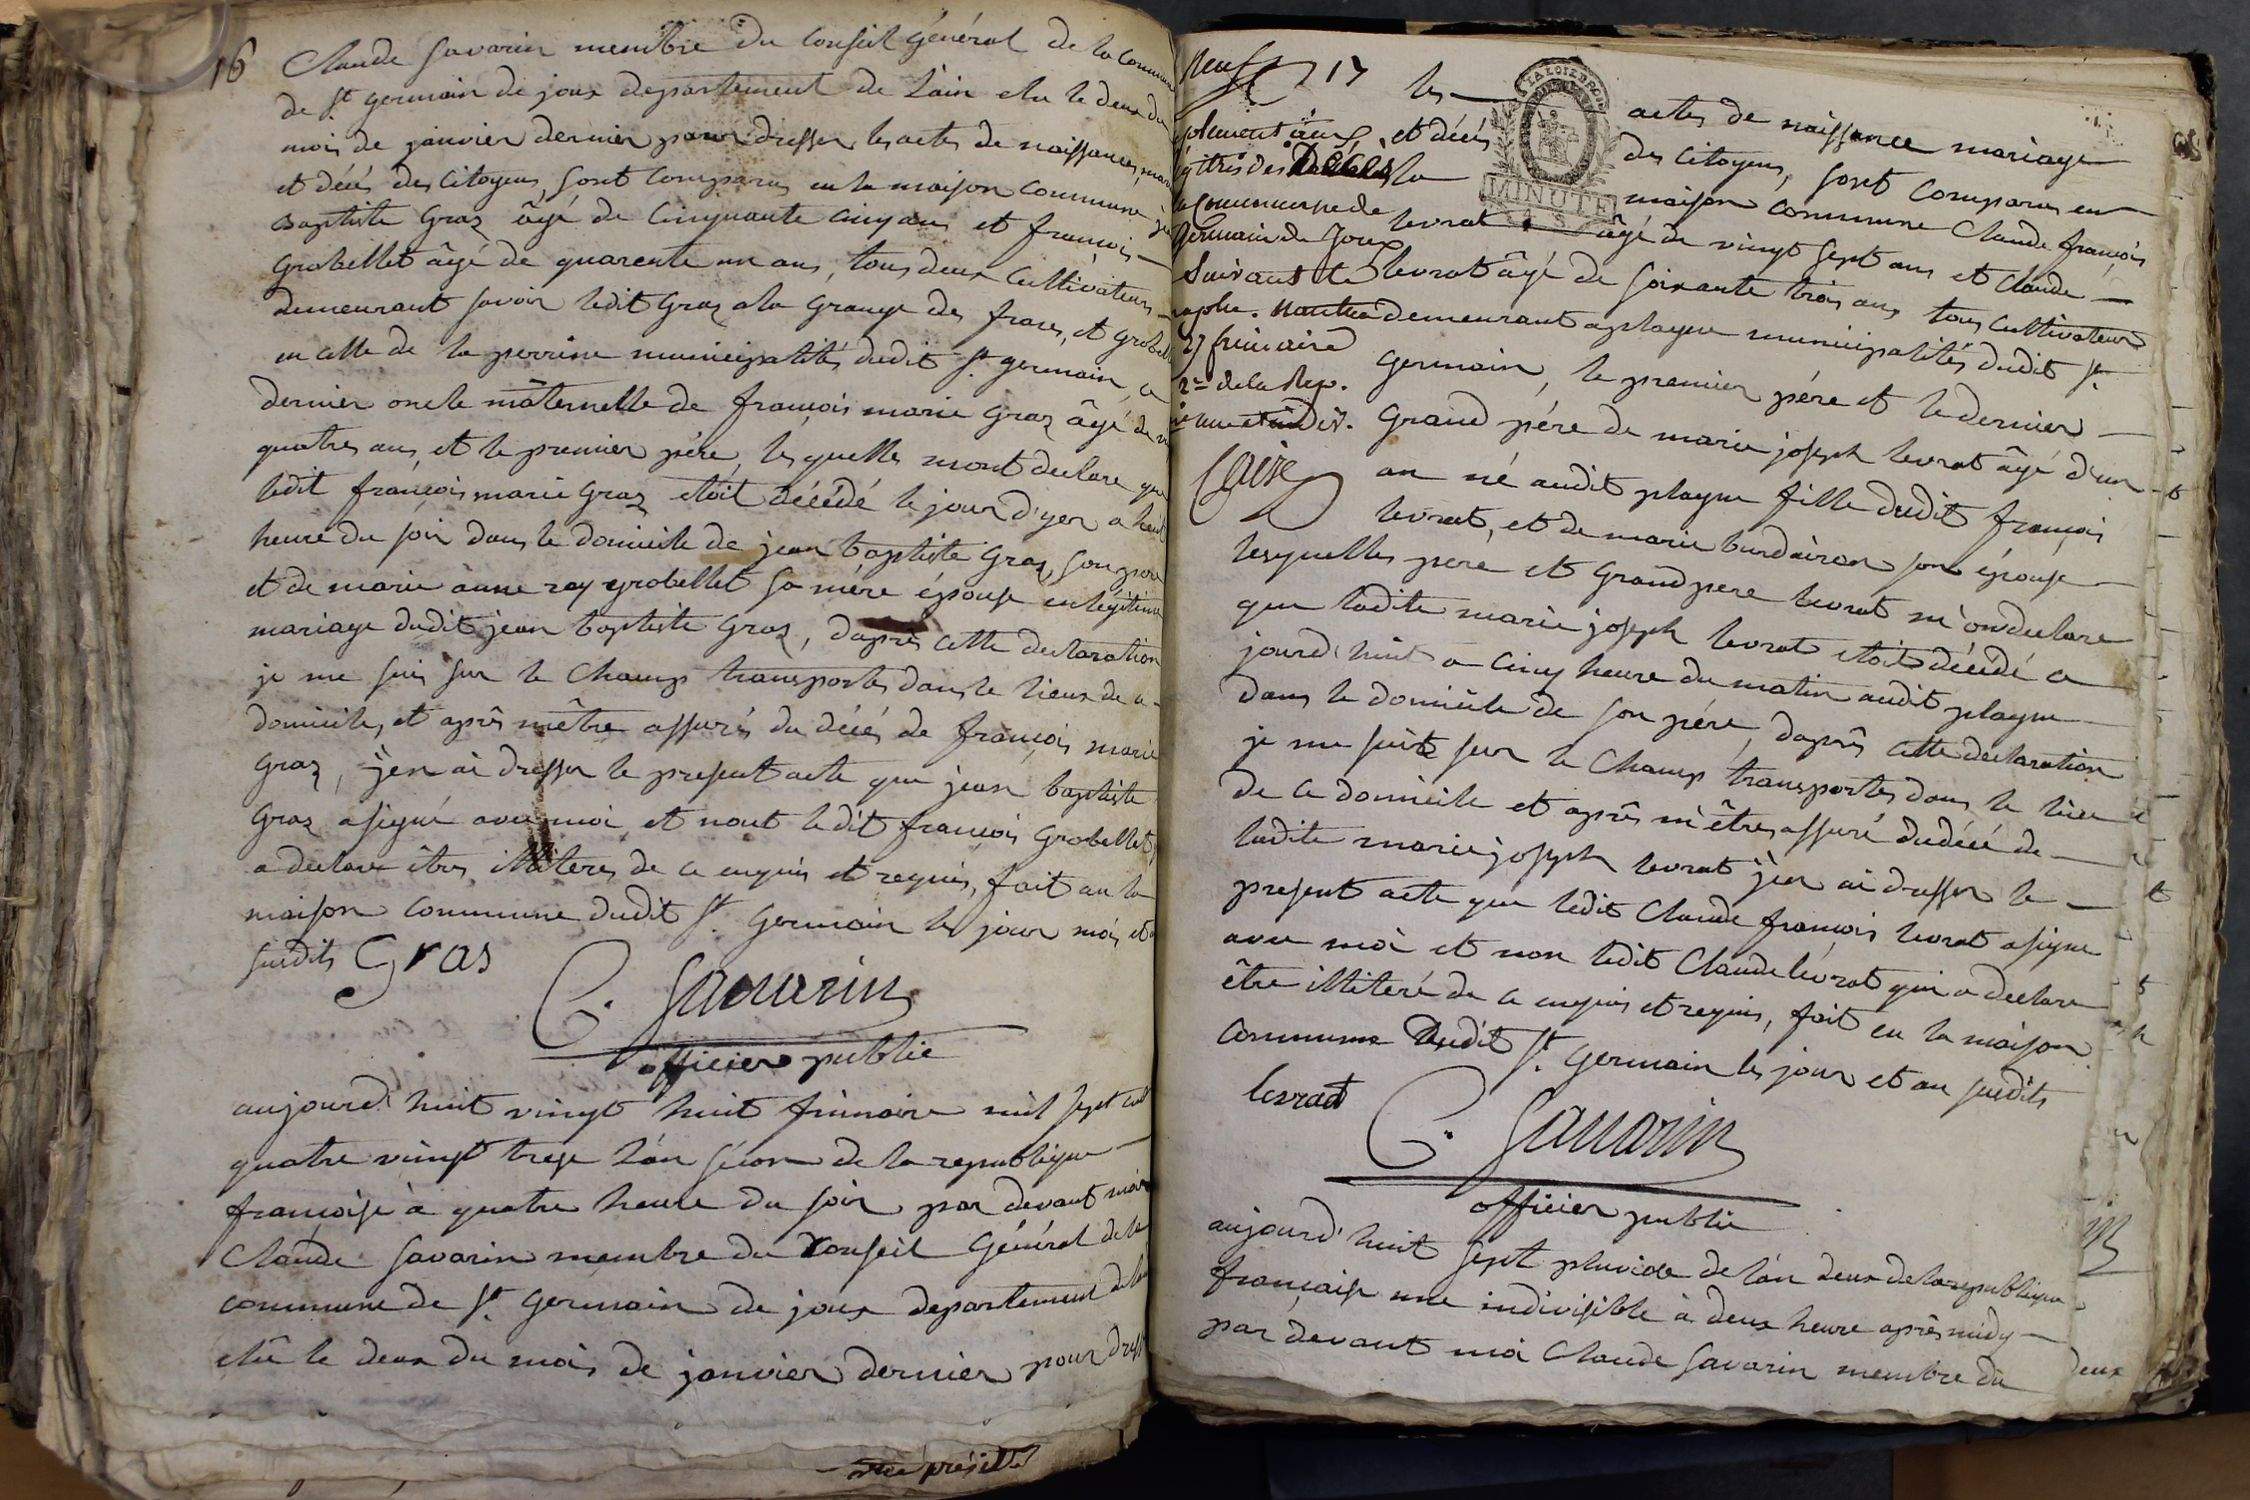 16
Claude Savarin membre du Conseil général de la Commune
de St germain de joux departement de l'ain elu le deux du
mois de janvier dernier pour dresser les actes de naissances, mar
et décés des citoyens, sont comparus en la maison commune je
Baptiste Graz âgé de cinquante cinq ans et françois
Grobellet âgé de quarente un ans, tous deux cultivateurs
demeurant savoir ledit Graz a la Grange des frares, et Grobell
en celle de la perrine municipalités dudit St germain, ce
dernier oncle mâternelle de françois marie Graz âgé de
quatres ans, et le premier père, lesquelles mont declare que
ledit françois marie Graz etoit décédé le jour d'yer a huit
heure du soir dans le domicile de jean baptiste Graz, son père
et de marie anne ray grobellet sa mére épouse en légitime
mariage dudit jean baptiste Graz, daprès cette declaration
je me suis sur le Champ transportés dans le lieux de ce
domicile, et après mêtre assurés du décés de françois marie
Graz, j'en ai dresser le present acte que jean baptiste
Graz a signé avec moi et nont ledit françois Grobellet
a declare êtres illiteres de ce enquis et requis, fait en la
maison commune dudit St. Germain les jour mois et
susdits Gras
C. Savarin
officier public
aujourd'huit vingt huit frimaire mil sept cent
quatre vingt treze l'an secon de la republique
françoise à quatre heure du soir par devant moi
Claude Savarin membre du Conseil Général de la
commune de St. Germain de joux departement de lain
elû le deux du mois de janvier dernier pour dress
17
les actes de naissance mariage
et décés des citoyens, sont comparus en
la maison commune Claude françois
levrat âgé de vingt sept ans et Claude
levrat âgé de soixante trois ans tous cultivateurs
demeurant a plagne municipalités dudit St.
Germain, le premier père et le dernier
Grand pére de marie joseph levrat âgé d'un
an né audit plagne fille dudit françois
levrat, et de marie burdairon son épouse
lesquelles pere et Grand pere levrat m'on declare
que ladite marie joseph levrat etoit décédé ce
jourd'huit a cinq heure du matin audit plagne
dans le domicile de son pére, daprês cette declaration
je me suits sur le Champ transportés dans le lieu
de ce domicile et après m'êtres assuré du décé de
ladite marie joseph levrat j'en ai dresser le
present acte que ledit Claude françois levrat a signe
avec moi et non ledit Claude levrat qui a declare
être illiteré de ce enquis et requis, fait en la maison
commune dudit St. Germain les jour et an susdits
levrat
C. Savarin
officier public
aujourd'huit sept pluviose de l'an deux de la republique
française une indivisible à deux heure après midy
par devant moi Claude Savarin membre du
neuf
DÉCÈS
la Commune de
Germain de Joux
Suivant le
27 frimaire
2e de la Rep.
MINUTE
deux